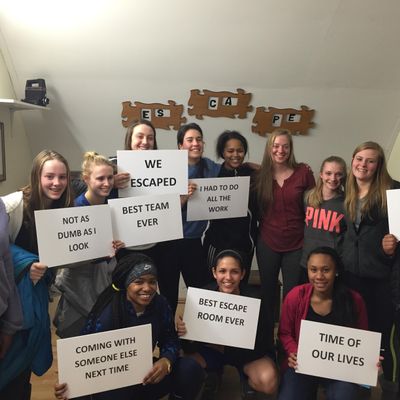 ES CA PE
WE
ESCAPED
NOT AS
DUMB AS I
LOOK
BEST TEAM
EVER
I HAD TO
DO ALL THE
WORK
PINK
BEST ESCAPE
ROOM EVER
COMING WITH
SOMEONE ELSE
NEXT TIME
TIME OF
OUR LIVES